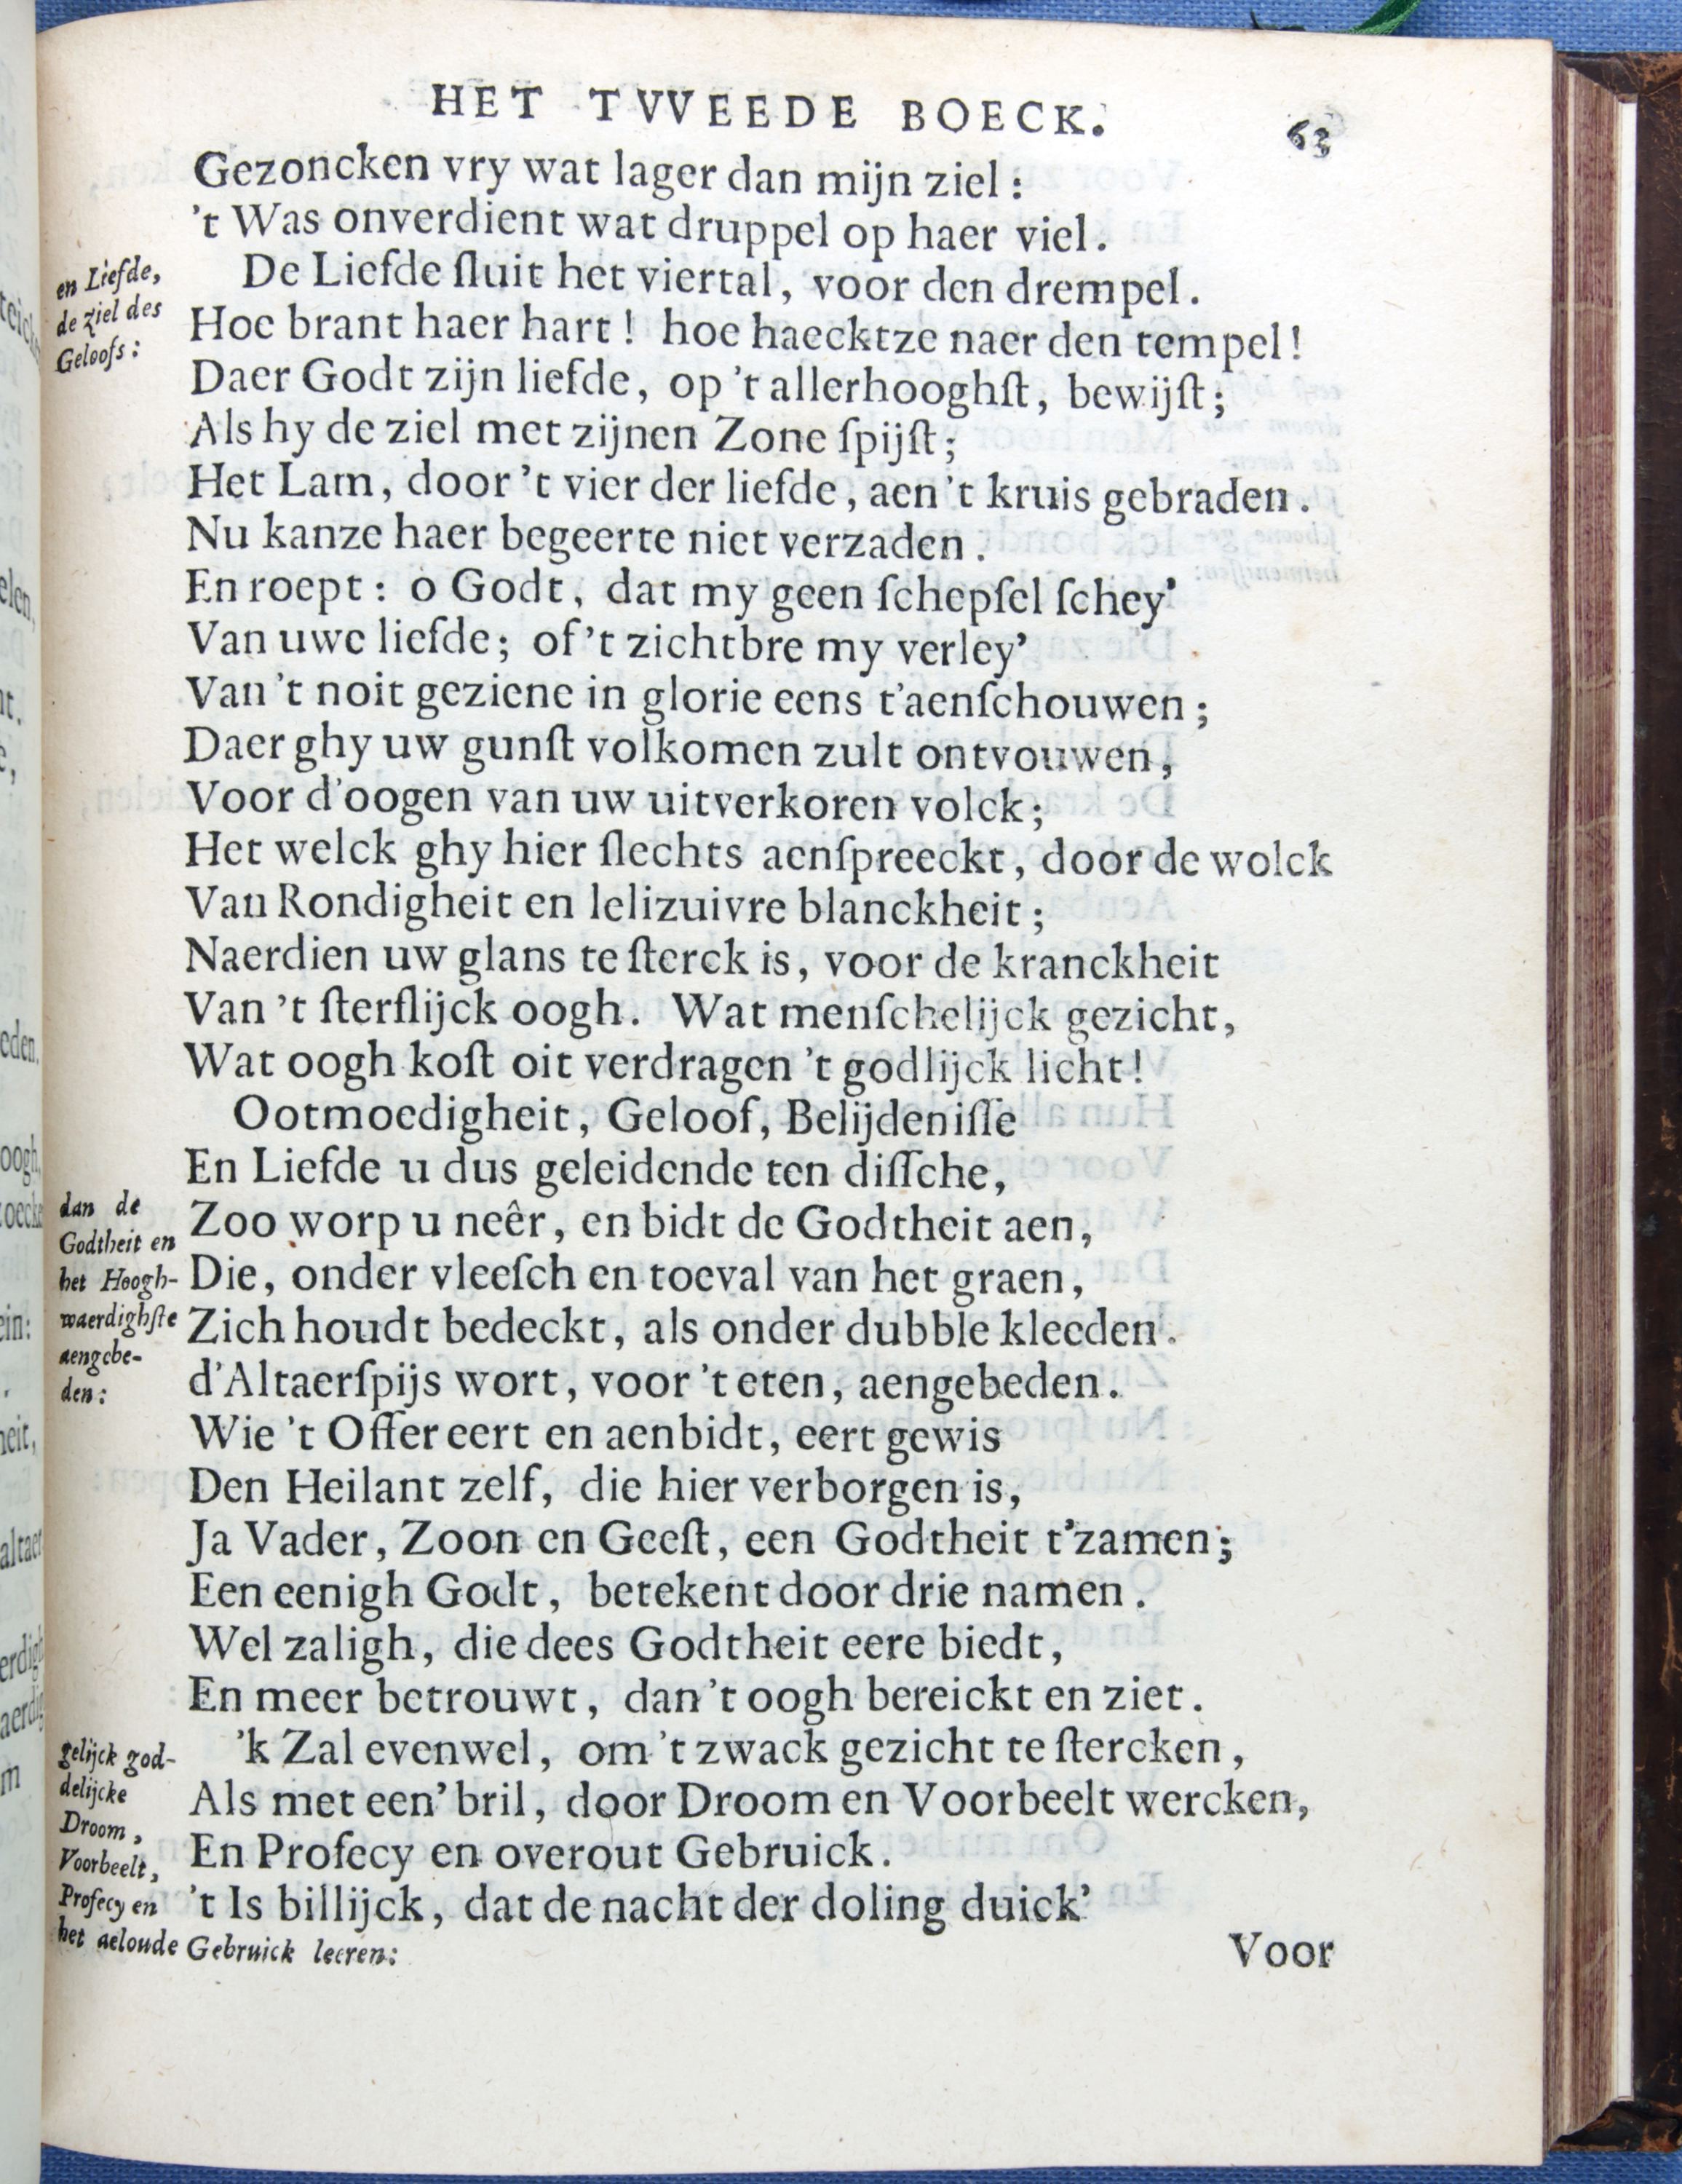 HET TVVEEDE BOECK. 63
Gezoncken vry wat lager dan mijn ziel:
't Was onverdient wat druppel op haer viel.
en Liefde,
de ziel des
Geloofs:
De Liefde ſluit het viertal, voor den drempel.
Hoe brant haer hart! hoe haecktze naer den tempel!
Daer Godt zijn liefde, op 't allerhooghſt, bewijſt;
Als hy de ziel met zijnen Zone ſpijſt;
Het Lam, door 't vier der liefde, aen 't kruis gebraden.
Nu kanze haer begeerte niet verzaden.
En roept: o Godt, dat my geen ſchepſel ſchey'
Van uwe liefde; of 't zichtbre my verley'
Van 't noit geziene in glorie eens t'aenſchouwen;
Daer ghy uw gunſt volkomen zult ontvouwen,
Voor d'oogen van uw uitverkoren volck;
Het welck ghy hier ſlechts aenſpreeckt, door de wolck
Van Rondigheit en lelizuivre blanckheit;
Naerdien uw glans te ſterck is, voor de kranckheit
Van 't ſterflijck oogh. Wat menſchelijck gezicht,
Wat oogh koſt oit verdragen 't godlijck licht!
Ootmoedigheit, Geloof, Belijdeniſſe
En Liefde u dus geleidende ten diſſche,
dan de
Godtheit en
het Hoogh-
waerdighſte
aengebe-
den:
Zoo worp u neêr, en bidt de Godtheit aen,
Die, onder vleeſch en toeval van het graen,
Zich houdt bedeckt, als onder dubble kleeden.
d'Altaerſpijs wort, voor 't eten, aengebeden.
Wie 't Offer eert en aenbidt, eert gewis
Den Heilant zelf, die hier verborgen is,
Ja Vader, Zoon en Geeſt, een Godtheit t'zamen;
Een eenigh Godt, betekent door drie namen.
Wel zaligh, die dees Godtheit eere biedt,
En meer betrouwt, dan 't oogh bereickt en ziet.
gelijck god-
delijcke
Droom,
Voorbeelt,
Profecy en
het aeloude Gebruick leeren:
'k Zal evenwel, om 't zwack gezicht te ſtercken,
Als met een' bril, door Droom en Voorbeelt wercken,
En Profecy en overout Gebruick.
't Is billijck, dat de nacht der doling duick'
Voor